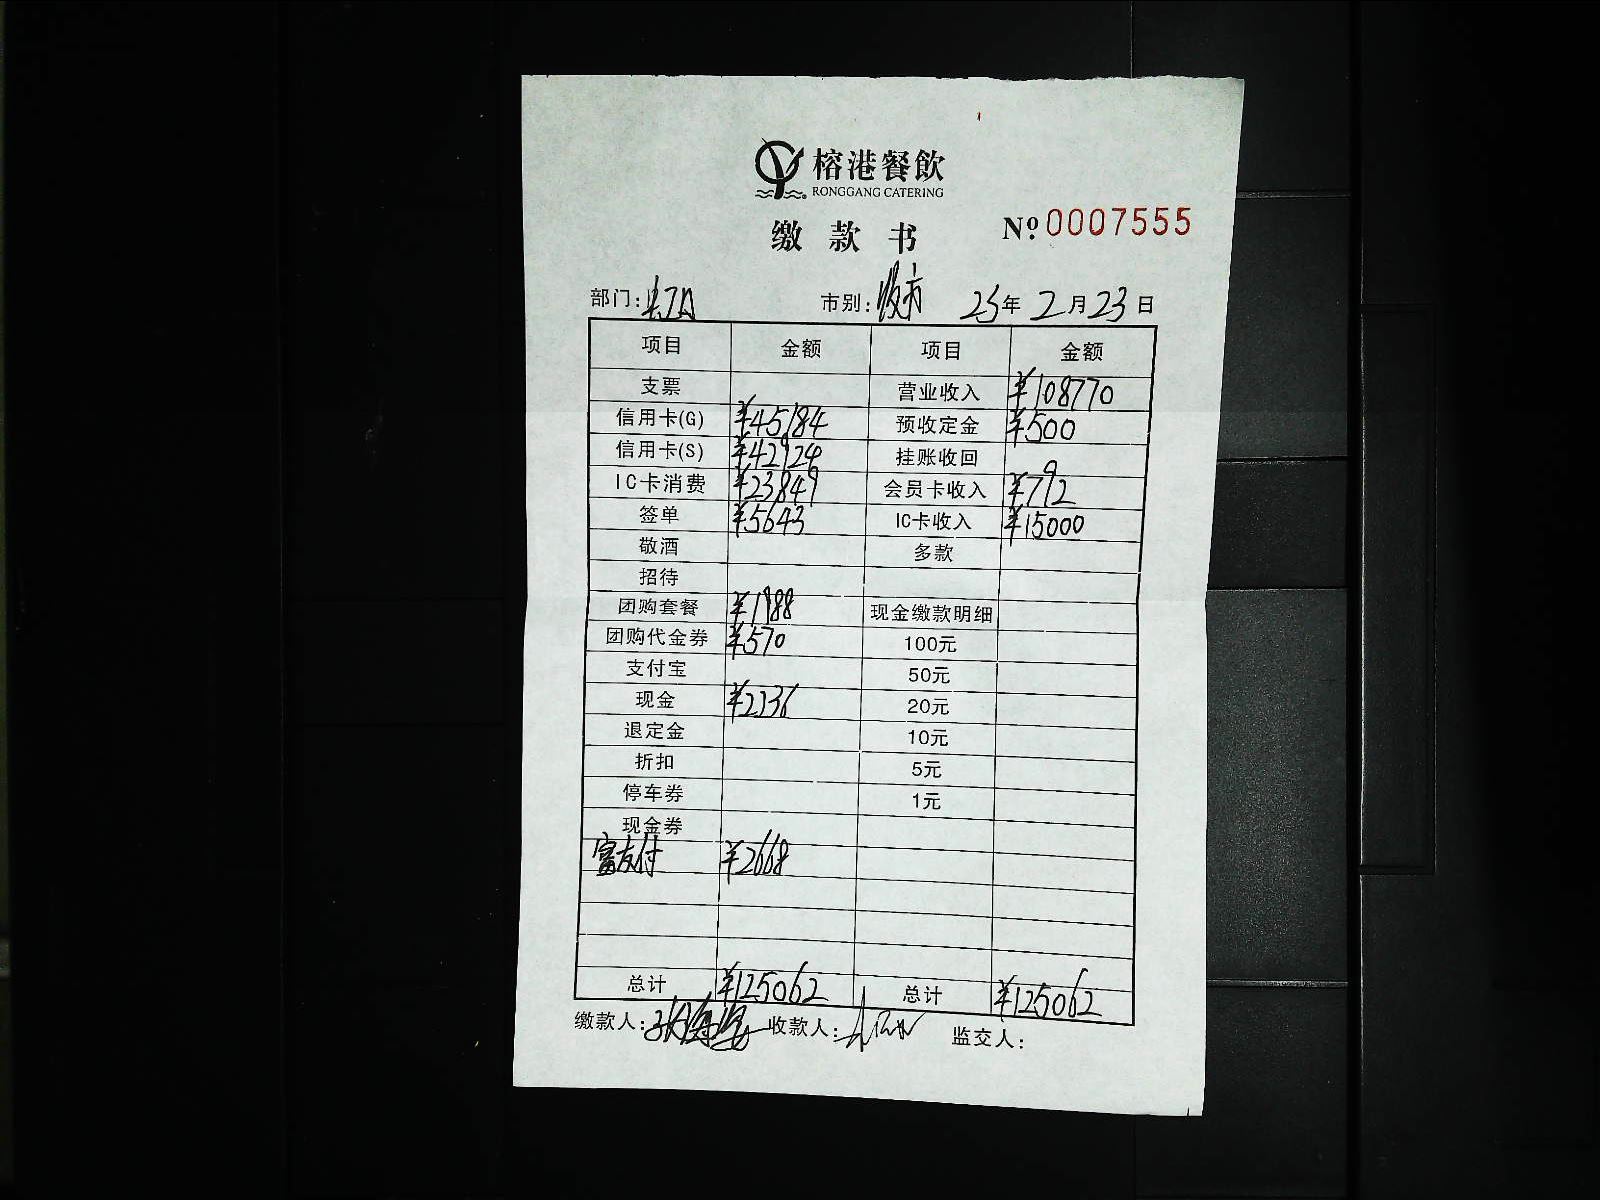 榕港餐飲
RONGGANG CATERING
缴款书 Nº 0007555
部门: 市别: 25年2月23日
项目 金额 项目 金额
支票 营业收入 ¥108770
信用卡(G) ¥45184 预收定金 ¥500
信用卡(S) ¥42924 挂账收回
IC卡消费 ¥23849 会员卡收入 ¥792
签单 ¥5643 IC卡收入 ¥15000
敬酒 多款
招待
团购套餐 ¥1988 现金缴款明细
团购代金券 ¥570 100元
支付宝 50元
现金 ¥2236 20元
退定金 10元
折扣 5元
停车券 1元
现金券
富友付 ¥2668
总计 ¥125062 总计 ¥125062
缴款人: 收款人: 监交人: